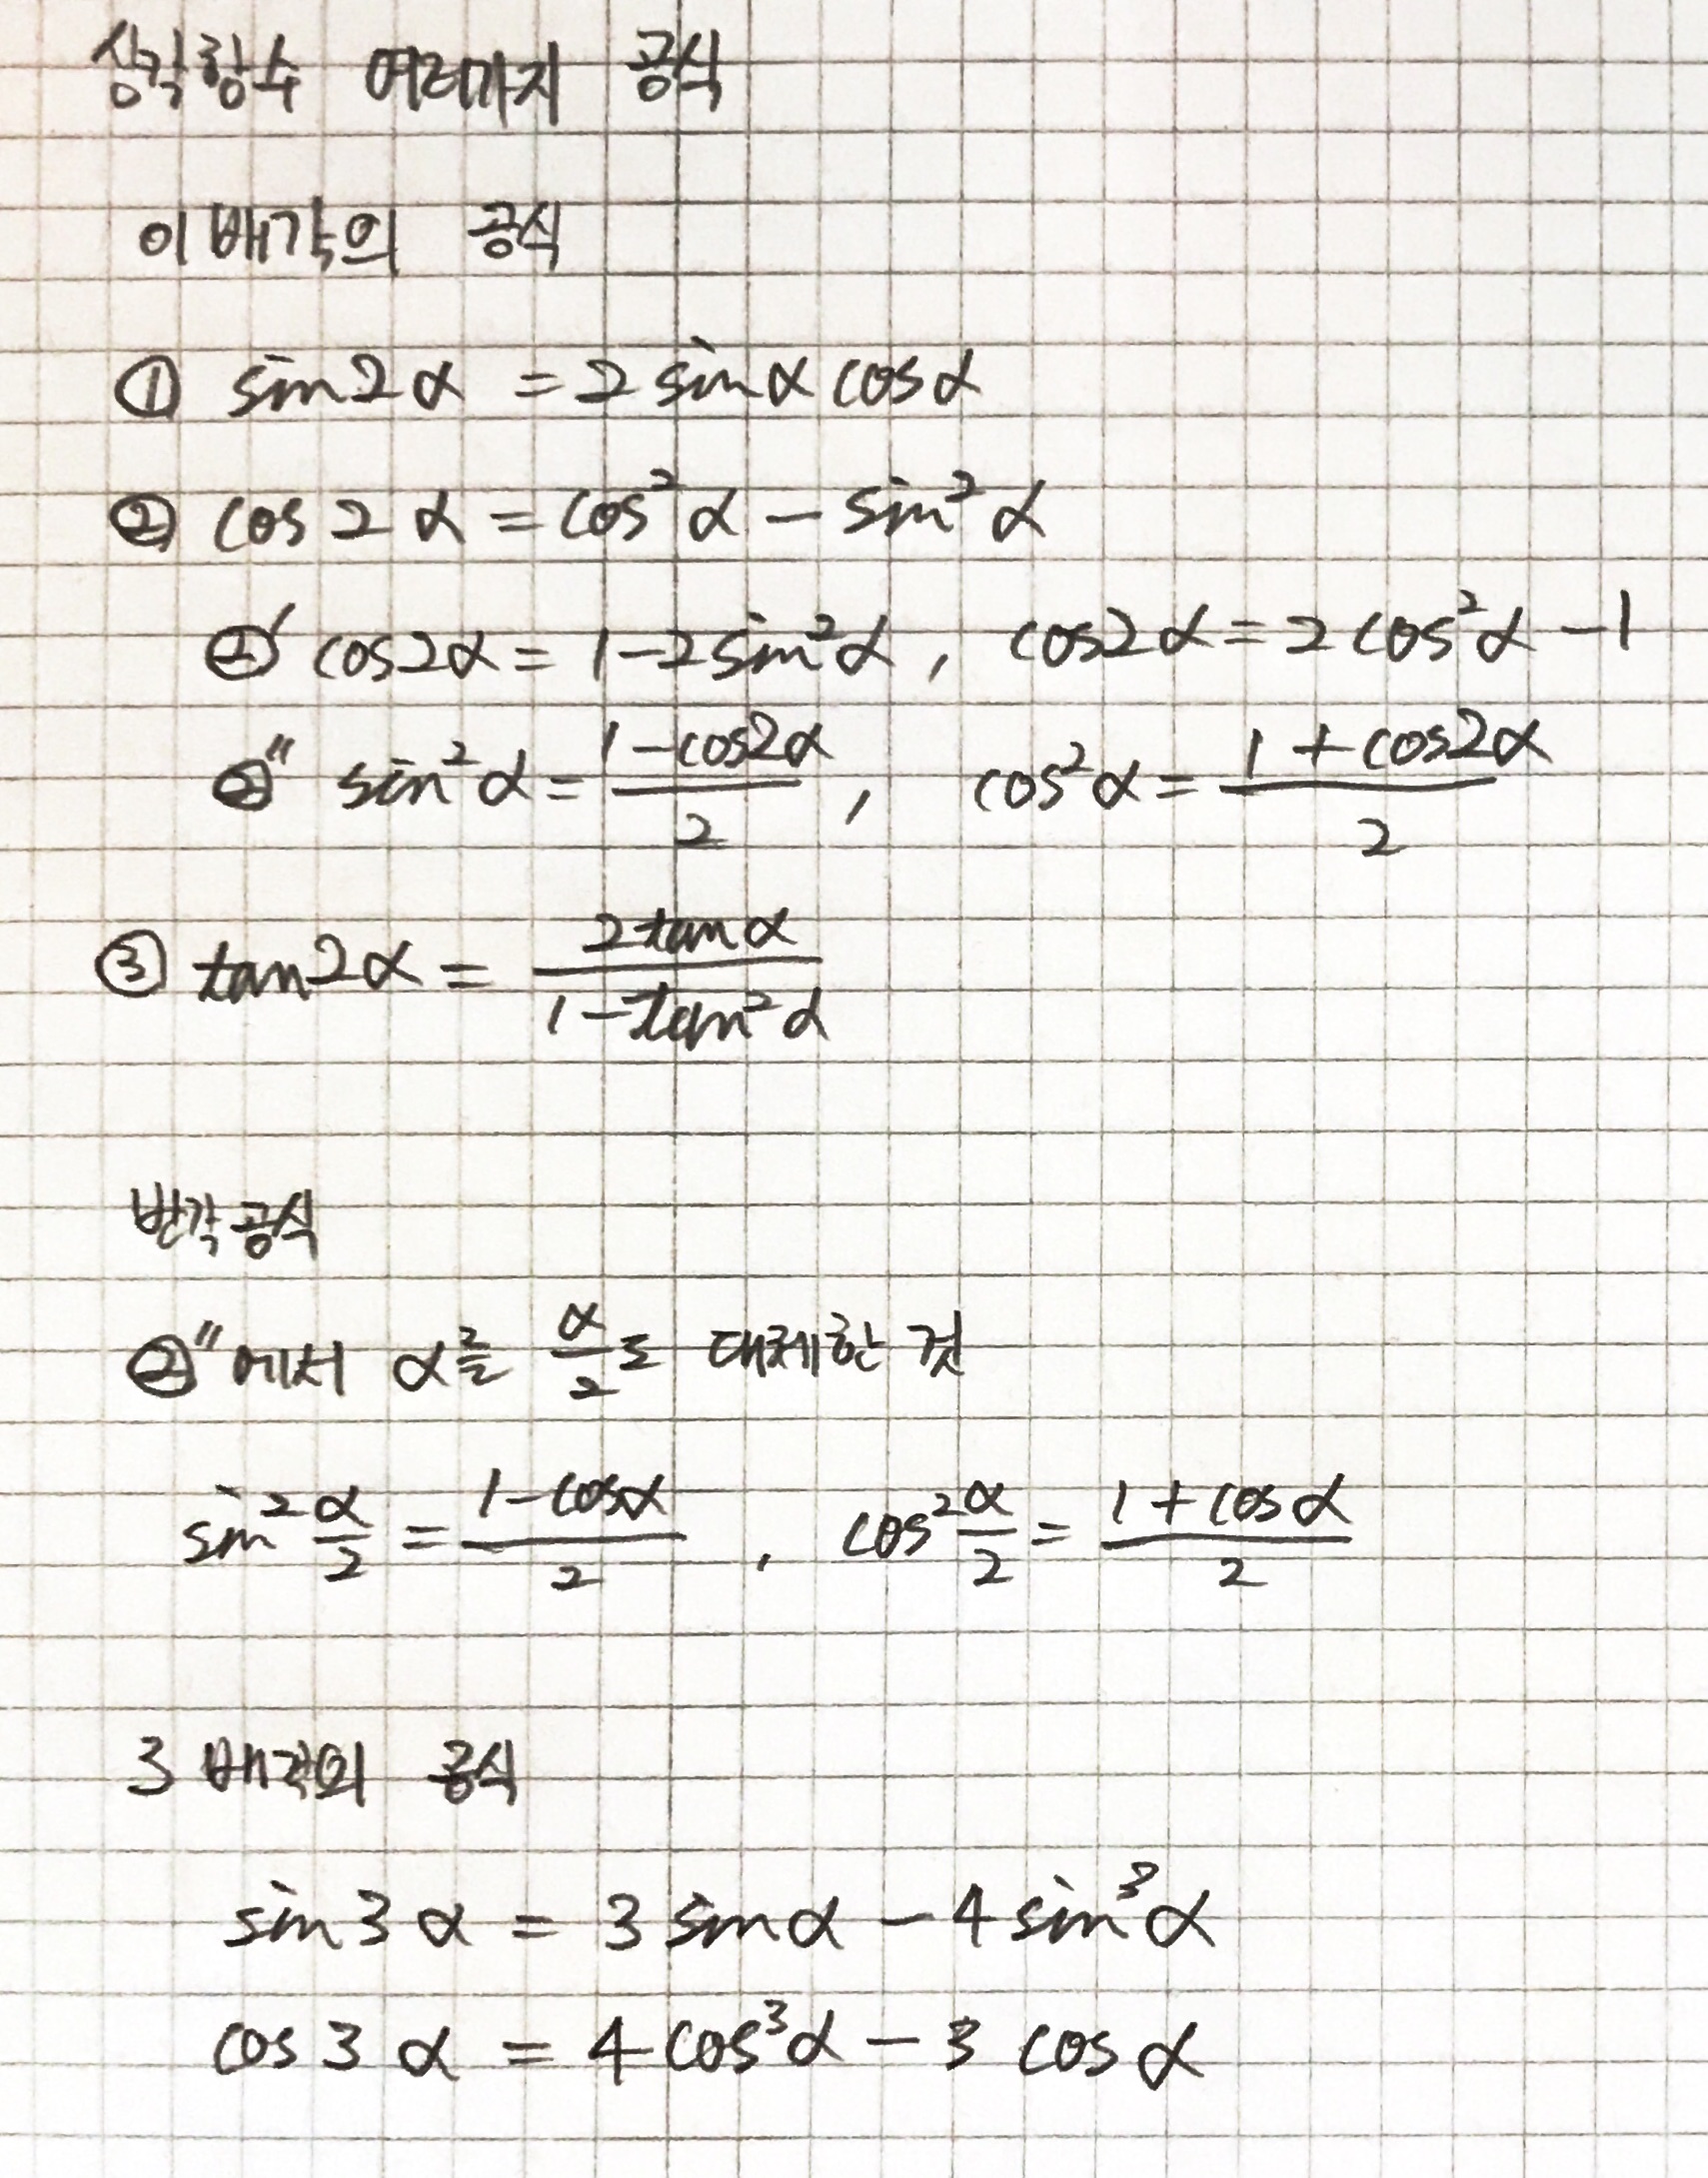 삼각함수 여러가지 공식
이배각의 공식
① sin2α = 2 sinα cosα
② cos 2α = cos²α − sin²α
②′ cos2α = 1−2sin²α, cos2α = 2cos²α −1
②″ sin²α = (1−cos2α)/2, cos²α = (1+cos2α)/2
③ tan2α = 2tanα/(1−tan²α)
반각공식
②″에서 α를 α/2로 대체한 것
sin² α/2 = (1−cosα)/2, cos² α/2 = (1+cosα)/2
3배각의 공식
sin3α = 3sinα − 4sin³α
cos3α = 4cos³α − 3cosα